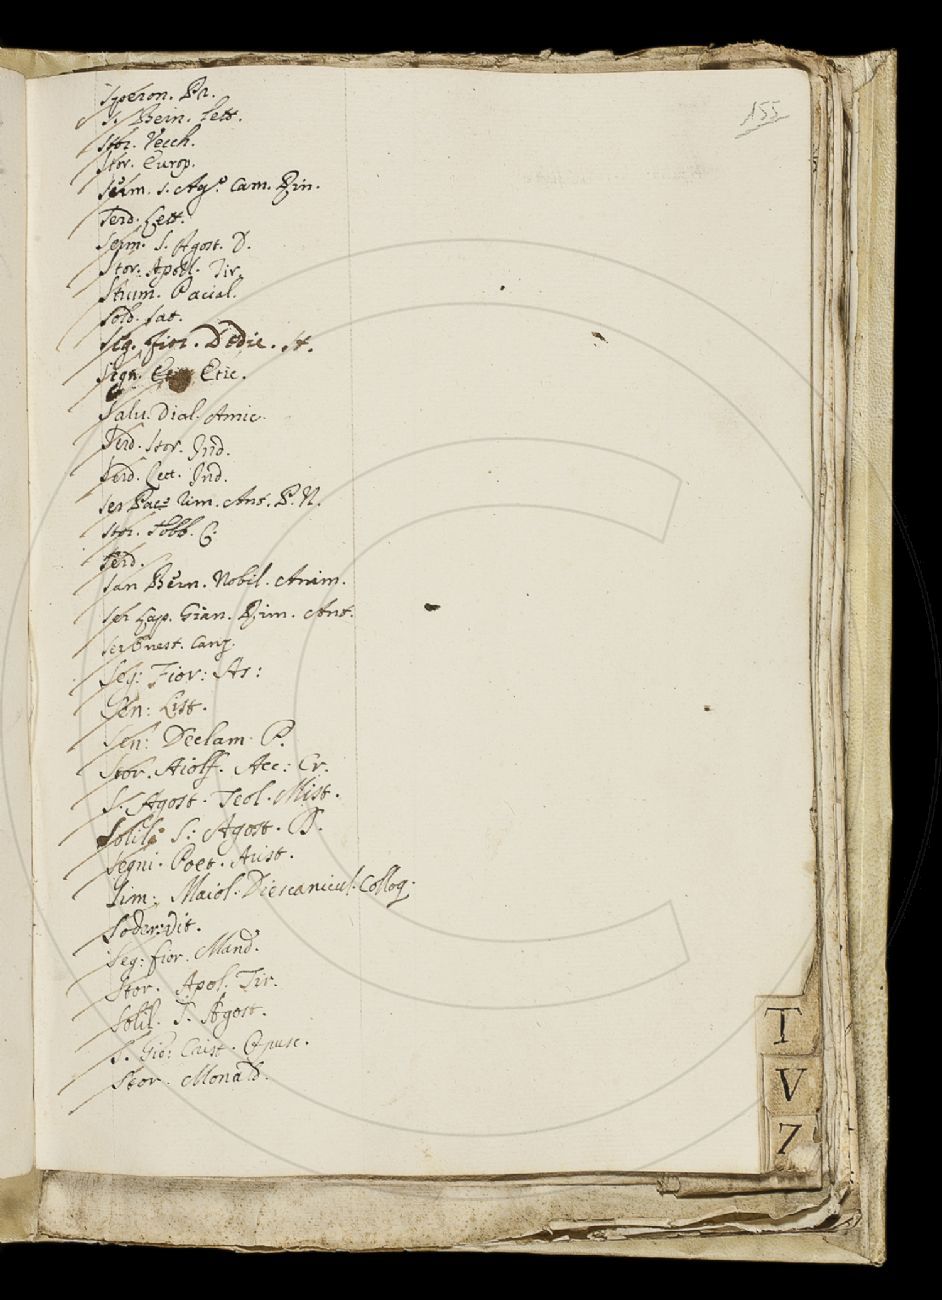 155
Speron. Pr.
S. Bern. Lett.
Stor. Vecch.
Stor. Europ.
Serm. S. Ag.º Cam. Pin.
Serd. Lett.
Serm. S. Agost. D.
Stor. Apoll. Tir.
Strum. Pacial.
Sold. Sat.
Seg. Fior. Dedic. A.
Segn. Etic.
Salv. Dial. Amic.
Serd. Stor. Ind.
Serd. Lett. Ind.
Ser Pace Rim. Ant. P. N.
Stor. Tobb. C.
Serd.
San Bern. Nobil. Anim.
Ser Lap. Gian. Rim. Ant.
Ser Onest. Canz.
Seg: Fior: As:
Sen: Pist.
Sen: Declam. P.
Stor. Aiolf. Acc: Cr.
S. Agost. Teol. Mist.
Solil: S: Agost. D.
Segni. Poet. Arist.
Sim: Maiol: Diescanicul: Colloq.
Soder: Vit.
Seg: fior. Mand.
Stor. Apol. Tir.
Solil. S. Agost.
S. Gio: Crist. Opusc.
Stor. Monald.
T
V
Z